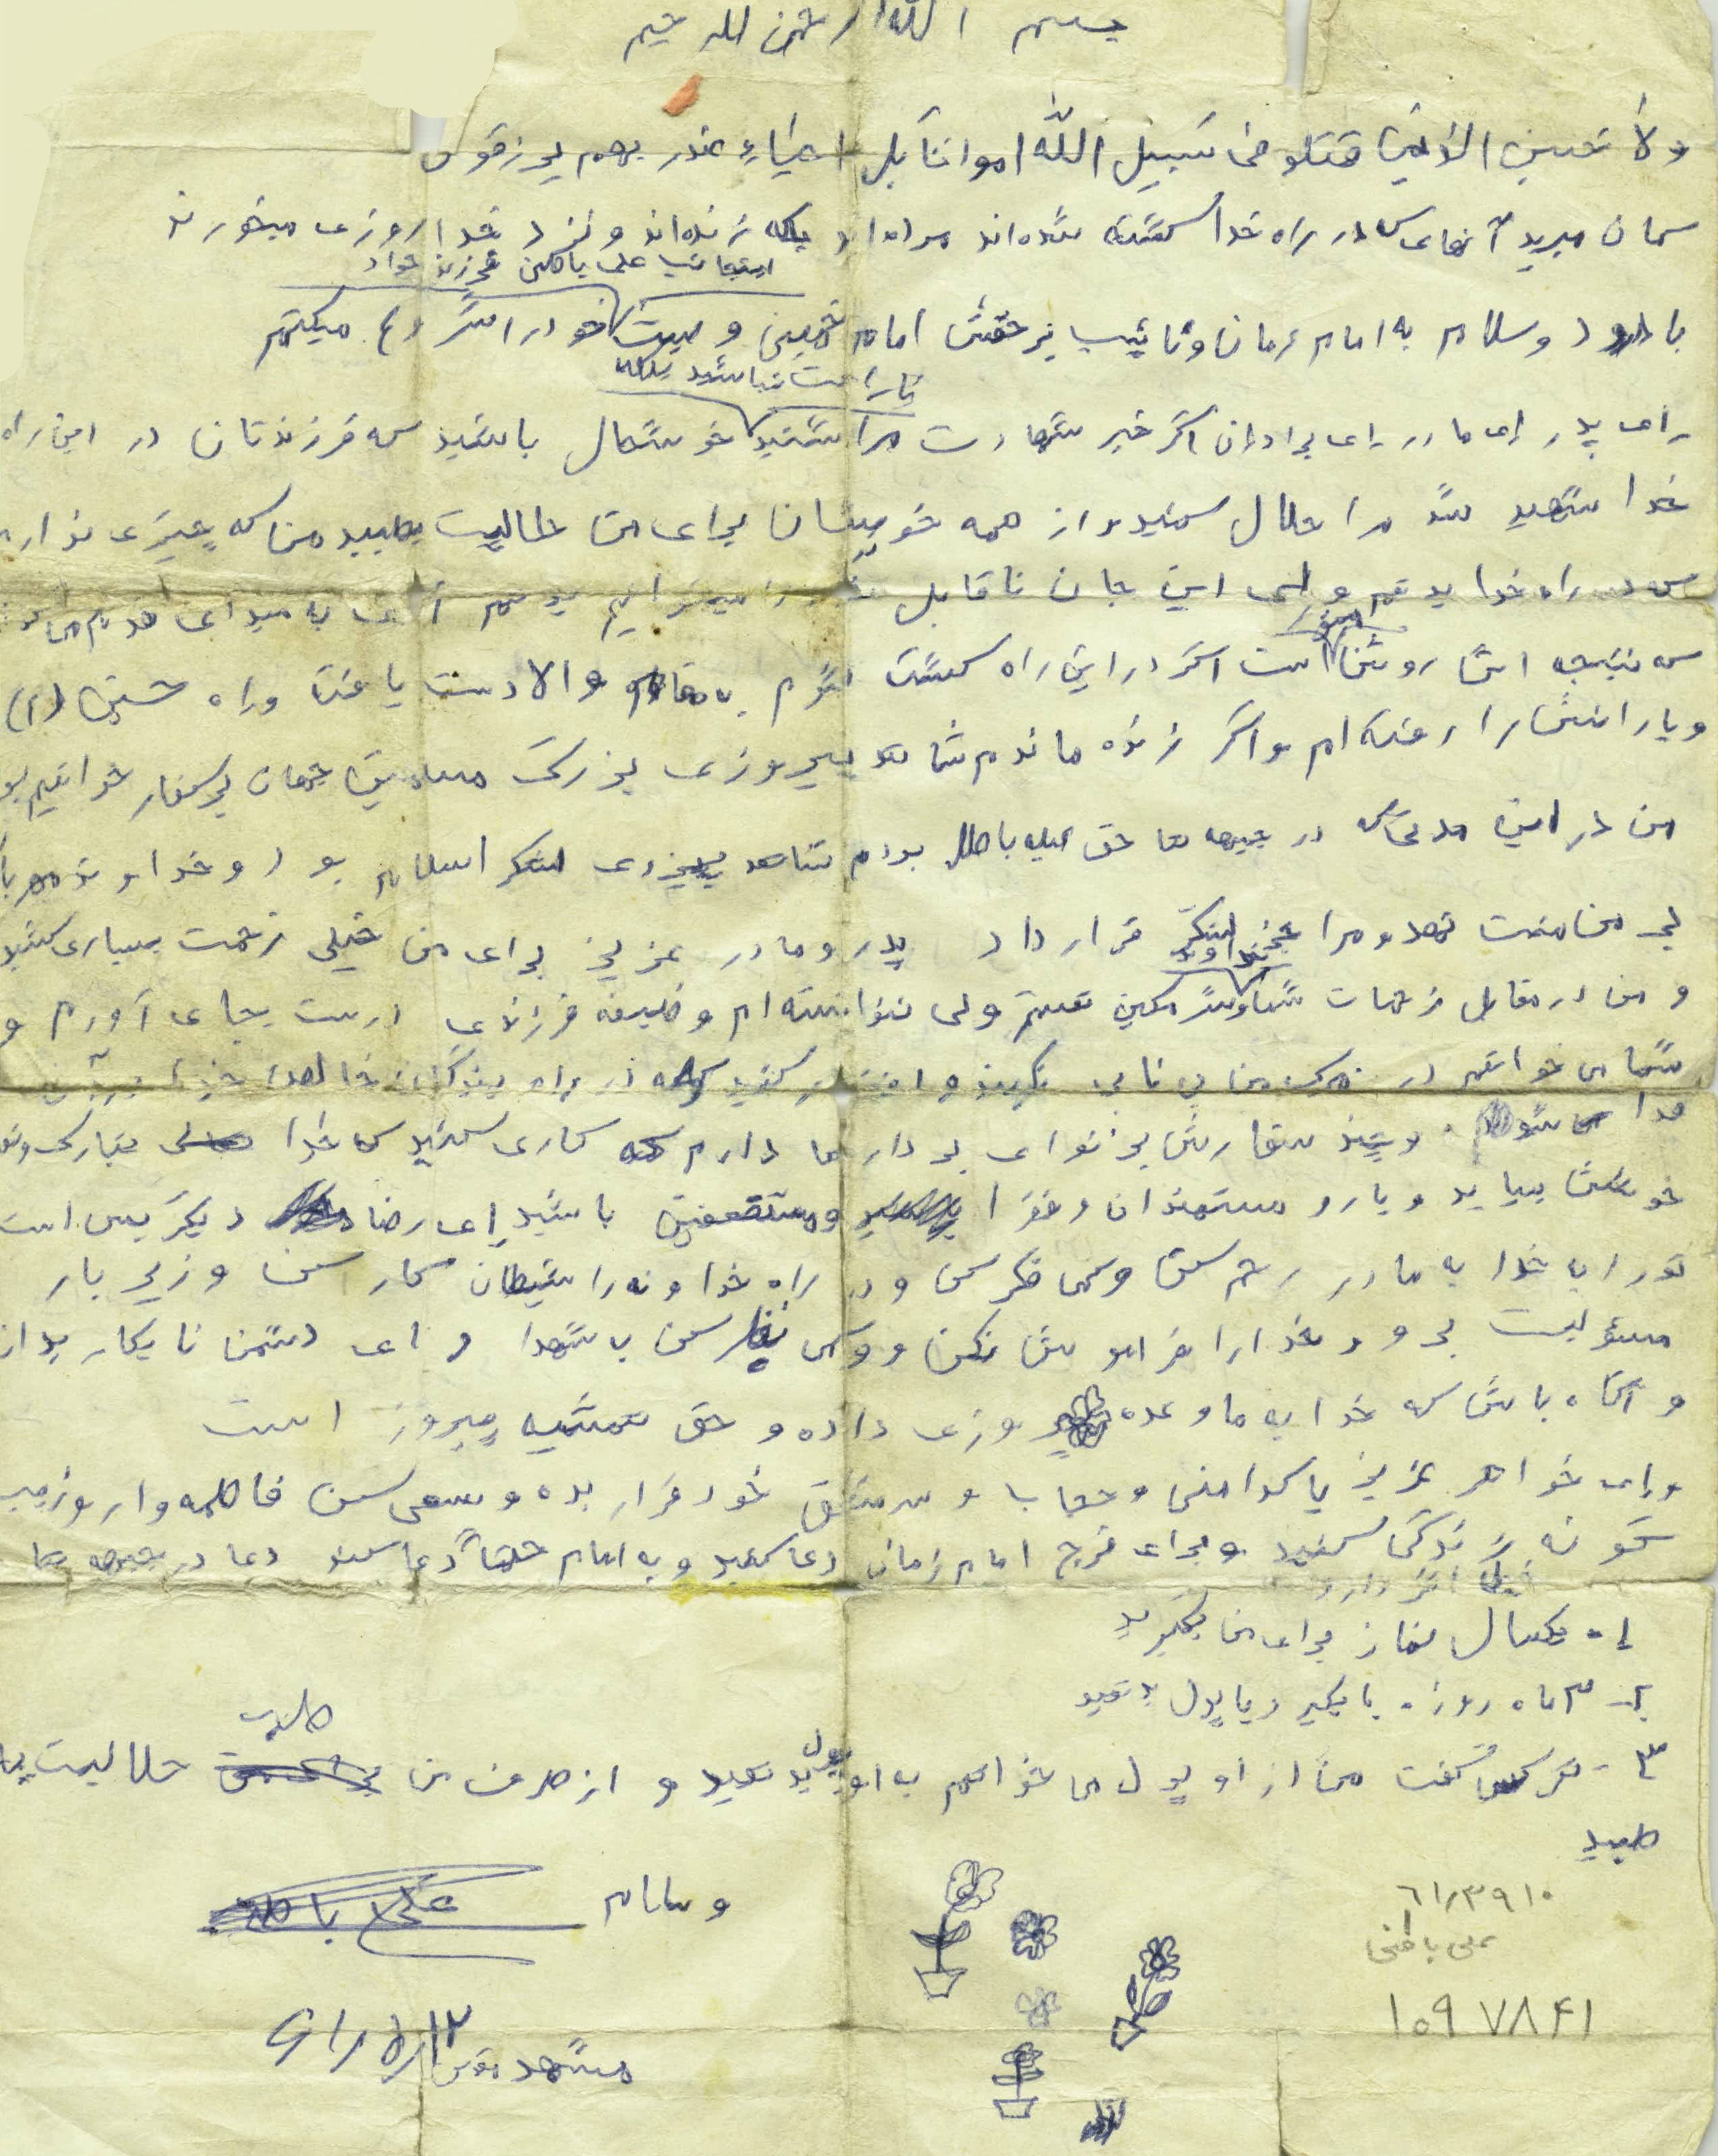 بسم الله الرحمن الرحیم
ولا تحسبن الذین قتلو فی سبیل الله امواتا بل احیاء عند ربهم یرزقون
گمان مبرید آنهای که در راه خدا کشته شده‌اند مرده‌اند بلکه زنده‌اند و نزد خدا روزی میخورند
اینجانب علی باطنی فرزند جواد
با درود و سلام به امام زمان و نائب برحقش امام خمینی وصیت خود را شروع میکنم
ناراحت نباشید بلکه
ای پدر ای مادر ای برادران اگر خبر شهادت مرا شنیدید خوشحال باشید که فرزندتان در این راه
خدا شهید شد مرا حلال کنید و از همه خویشان برای من حلالیت بطلبید من که چیزی ندارم
که در راه خدا بدهم ولی این جان ناقابل
که نتیجه اش روشن است اگر در این راه کشته شوم به مقام والا دست یافته و راه حسین (ع)
و یارانش را رفته ام و اگر زنده ماندم شاهد پیروزی بزرگ مسلمین جهان بر کفار خواهیم بود
من در این مدتی که در جبهه ها حق علیه باطل بودم شاهد پیروزی لشکر اسلام بود و خداوند مهربان
بر من منت نهد و مرا جزء لشکر خداوند قرار داد پدر و مادر عزیز برای من خیلی زحمت بسیاری کشید
و من در مقابل زحمات شما شرمگین هستم ولی نتوانسته ام وظیفه فرزندی درست بجای آورم و
شما می خواهم در مرگ من بی تابی نکنید و افتخار کنید که در راه
خدا و چند سفارش برای برادرها دارم که کاری کنید که خدا
خوشش بیاید و یار و مستمندان و فقرا و مستضعفین باشید ای رضا دیگر بس است
تو را به خدا به مادر رحم کن و کمی فکر کن و در راه خدا و نه راه شیطان کار کن و زیر بار
مسئولیت برو و خدا را فراموش نکن و کمی نگاه کن به شهدا و ای دشمن نابکار بدان
و آگاه باش که خدا به ما وعده پیروزی داده و حق همیشه پیروز است
و ای خواهر عزیز پاکدامنی و حجاب و سرمشق خود قرار بده و سعی کن فاطمه وار و زینب
گونه زندگی کنید و برای فرج امام زمان دعا کنید و به امام حتماً دعا کنید دعا در جبهه ها
خیلی اثر دارد
۱- یکسال نماز برای من بگیرید
۲- ۳ ماه روزه یا بگیر و یا پول بدهید
۳- هر کس گفت من از او پول می خواهم به او پول بدهید و از طرف من طلب حلالیت
طلبید
والسلام علی باطنی
۶۱/۳۹۱۰
علی باطنی
۱۰۹۷۸۴۱
مشهد مقدس ۶۱/۵/۱۲